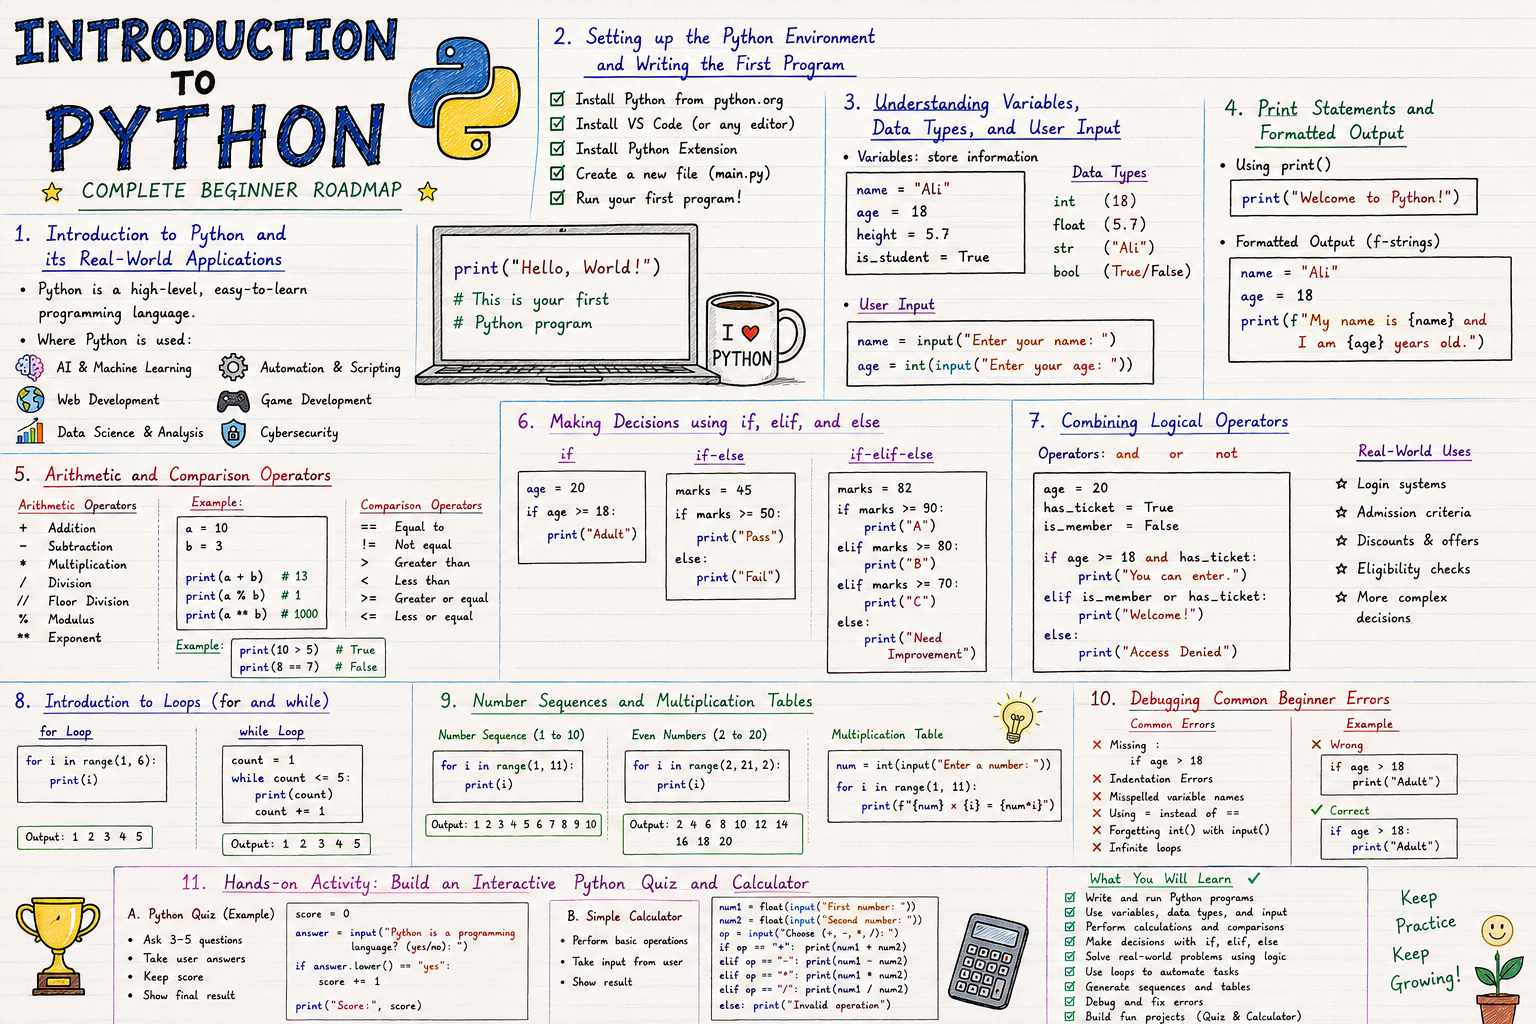 INTRODUCTION
TO
PYTHON
COMPLETE BEGINNER ROADMAP
1. Introduction to Python and
its Real-World Applications
• Python is a high-level, easy-to-learn
programming language.
• Where Python is used:
AI & Machine Learning
Automation & Scripting
Web Development
Game Development
Data Science & Analysis
Cybersecurity
2. Setting up the Python Environment
and Writing the First Program
Install Python from python.org
Install VS Code (or any editor)
Install Python Extension
Create a new file (main.py)
Run your first program!
print("Hello, World!")
# This is your first
# Python program
I ❤ PYTHON
3. Understanding Variables,
Data Types, and User Input
• Variables: store information
name = "Ali"
age = 18
height = 5.7
is_student = True
Data Types
int (18)
float (5.7)
str ("Ali")
bool (True/False)
• User Input
name = input("Enter your name: ")
age = int(input("Enter your age: "))
4. Print Statements and
Formatted Output
• Using print()
print("Welcome to Python!")
• Formatted Output (f-strings)
name = "Ali"
age = 18
print(f"My name is {name} and
I am {age} years old.")
5. Arithmetic and Comparison Operators
Arithmetic Operators
+ Addition
− Subtraction
* Multiplication
/ Division
// Floor Division
% Modulus
** Exponent
Example:
a = 10
b = 3
print(a + b) # 13
print(a % b) # 1
print(a ** b) # 1000
Comparison Operators
== Equal to
!= Not equal
> Greater than
< Less than
>= Greater or equal
<= Less or equal
Example:
print(10 > 5) # True
print(8 == 7) # False
6. Making Decisions using if, elif, and else
if
age = 20
if age >= 18:
print("Adult")
if-else
marks = 45
if marks >= 50:
print("Pass")
else:
print("Fail")
if-elif-else
marks = 82
if marks >= 90:
print("A")
elif marks >= 80:
print("B")
elif marks >= 70:
print("C")
else:
print("Need
Improvement")
7. Combining Logical Operators
Operators: and or not
age = 20
has_ticket = True
is_member = False
if age >= 18 and has_ticket:
print("You can enter.")
elif is_member or has_ticket:
print("Welcome!")
else:
print("Access Denied")
Real-World Uses
☆ Login systems
☆ Admission criteria
☆ Discounts & offers
☆ Eligibility checks
☆ More complex
decisions
8. Introduction to Loops (for and while)
for Loop
for i in range(1, 6):
print(i)
Output: 1 2 3 4 5
while Loop
count = 1
while count <= 5:
print(count)
count += 1
Output: 1 2 3 4 5
9. Number Sequences and Multiplication Tables
Number Sequence (1 to 10)
for i in range(1, 11):
print(i)
Output: 1 2 3 4 5 6 7 8 9 10
Even Numbers (2 to 20)
for i in range(2, 21, 2):
print(i)
Output: 2 4 6 8 10 12 14
16 18 20
Multiplication Table
num = int(input("Enter a number: "))
for i in range(1, 11):
print(f"{num} × {i} = {num*i}")
10. Debugging Common Beginner Errors
Common Errors
✕ Missing :
if age > 18
✕ Indentation Errors
✕ Misspelled variable names
✕ Using = instead of ==
✕ Forgetting int() with input()
✕ Infinite loops
Example
✕ Wrong
if age > 18
print("Adult")
✓ Correct
if age > 18:
print("Adult")
11. Hands-on Activity: Build an Interactive Python Quiz and Calculator
A. Python Quiz (Example)
• Ask 3–5 questions
• Take user answers
• Keep score
• Show final result
score = 0
answer = input("Python is a programming
language? (yes/no): ")
if answer.lower() == "yes":
score += 1
print("Score:", score)
B. Simple Calculator
• Perform basic operations
• Take input from user
• Show result
num1 = float(input("First number: "))
num2 = float(input("Second number: "))
op = input("Choose (+, −, *, /): ")
if op == "+": print(num1 + num2)
elif op == "−": print(num1 − num2)
elif op == "*": print(num1 * num2)
elif op == "/": print(num1 / num2)
else: print("Invalid operation")
What You Will Learn ✓
Write and run Python programs
Use variables, data types, and input
Perform calculations and comparisons
Make decisions with if, elif, else
Solve real-world problems using logic
Use loops to automate tasks
Generate sequences and tables
Debug and fix errors
Build fun projects (Quiz & Calculator)
Keep
Practice
Keep
Growing!